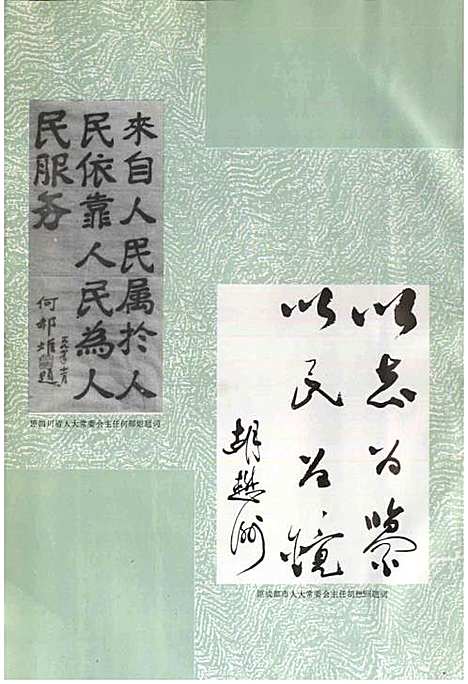 來自人民属於人
民依靠人民為人
民服务
何郝炬
題
原四川省人大常委会主任何郝炬题词
以志为鉴
以民为镜
胡懋洲
原成都市人大常委会主任胡懋洲题词